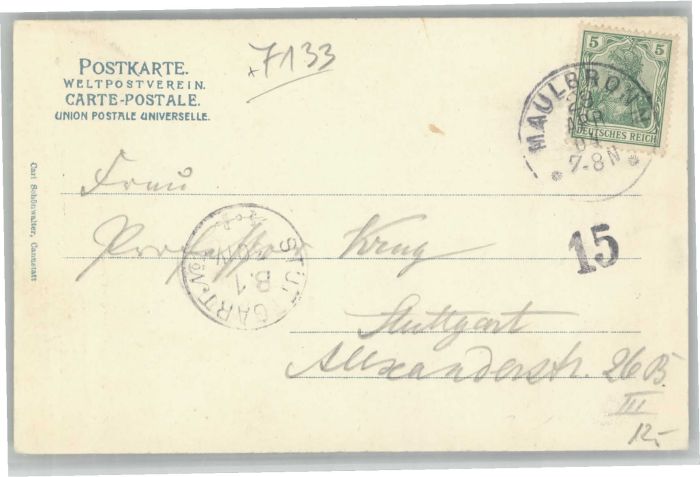 POSTKARTE.
WELTPOSTVEREIN.
CARTE-POSTALE.
UNION POSTALE UNIVERSELLE.
x7133
5 5
DEUTSCHES REICH
MAULBRONN
28
APR
04
7-8N
Frau
Professor Krug
Stuttgart
Alexanderstr. 26 B.
III
12,-
15
STUTTGART No
B.1
Carl Schönwalter, Cannstatt